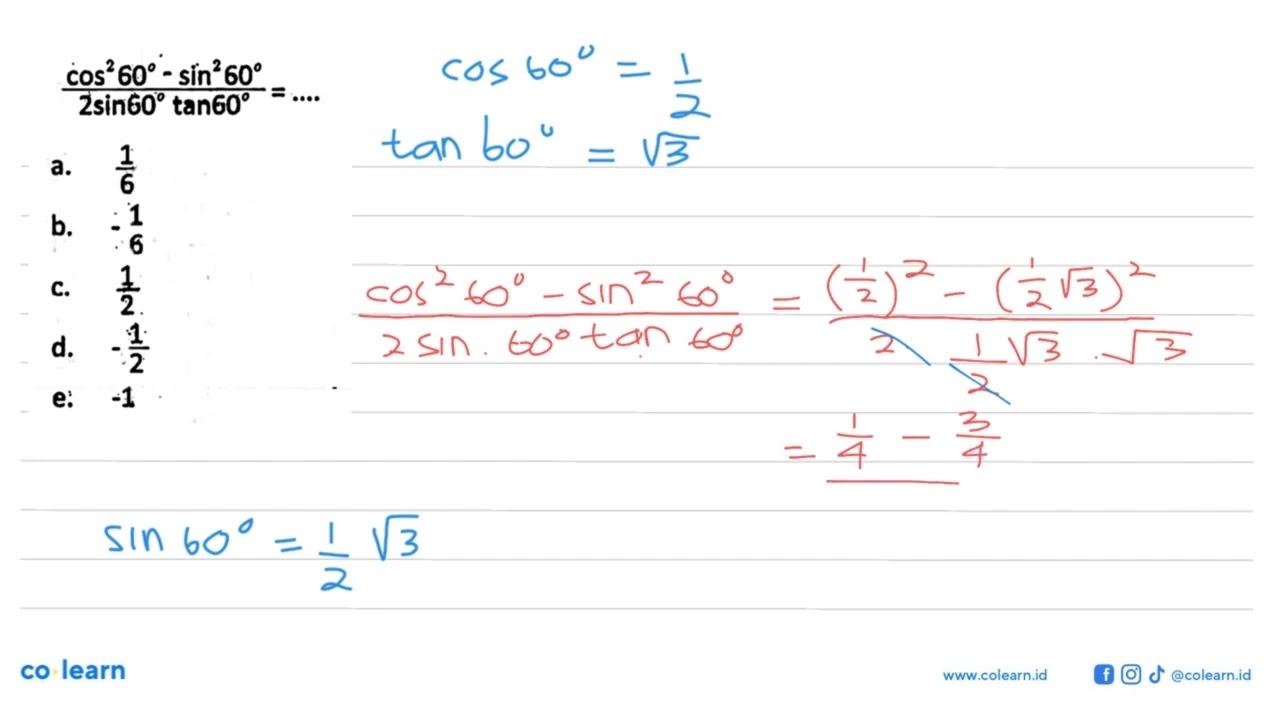 cos²60° - sin²60° / 2sin60° tan60° = ....
a. 1/6
b. -1/6
c. 1/2
d. -1/2
e. -1
cos 60° = 1/2
tan 60° = √3
cos² 60° - sin² 60° / 2 sin. 60° tan 60° = (1/2)² - (1/2 √3)² / 2 1/2 √3 . √3
= 1/4 - 3/4
sin 60° = 1/2 √3
co learn
www.colearn.id
@colearn.id